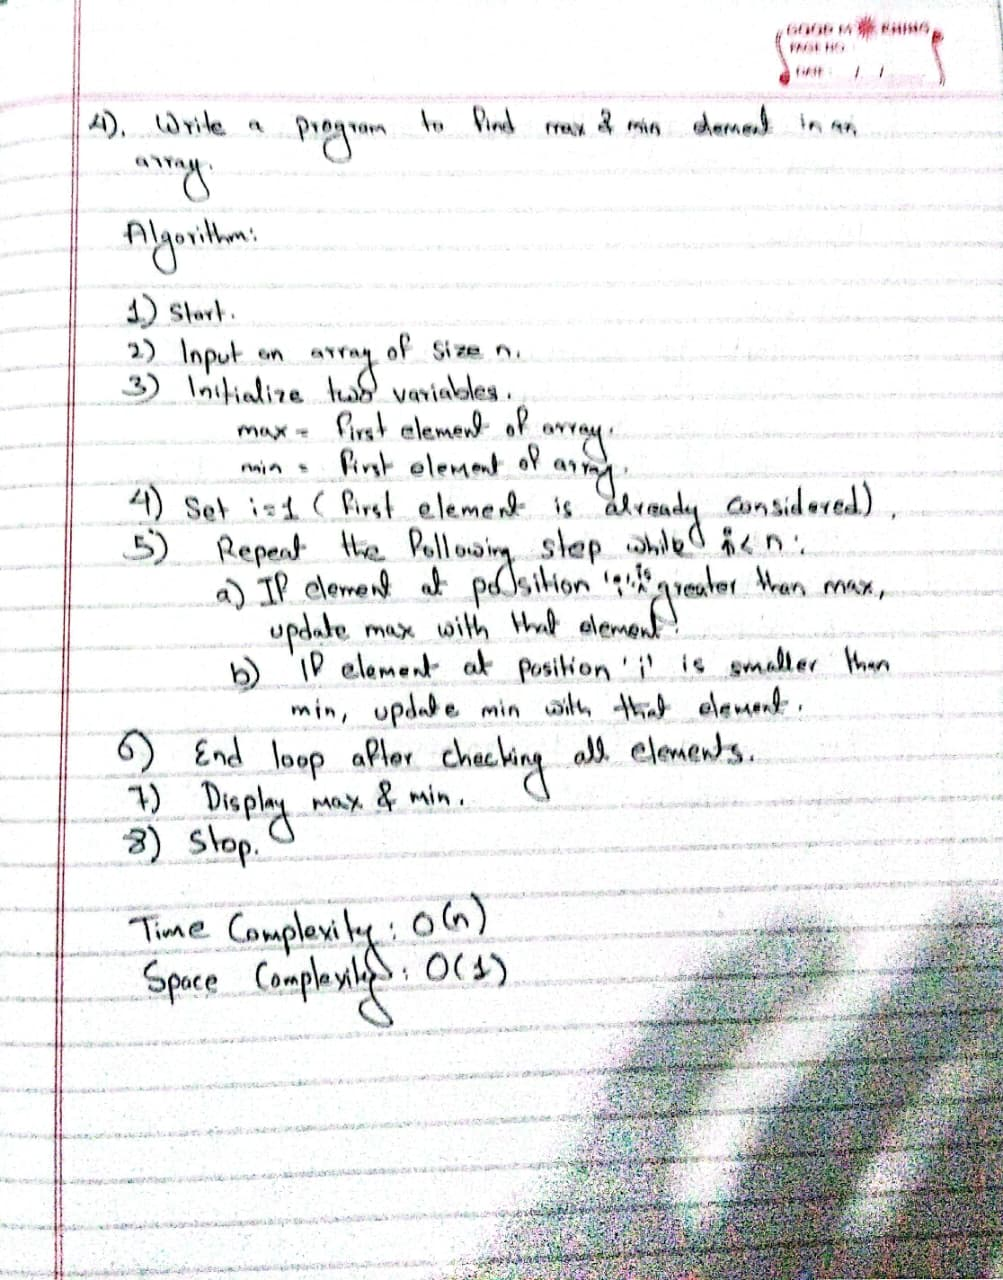 GOOD MORNING
PAGE NO.
DATE: / /
4). Write a program to find max & min element in an
array.
Algorithm:
1) Start.
2) Input an array of size n.
3) Initialize two variables.
max = first element of array.
min = first element of array.
4) Set i=1 (first element is already considered).
5) Repeat the following step while i<n:
a) If element at position 'i' is greater than max,
update max with that element.
b) If element at position 'i' is smaller than
min, update min with that element.
6) End loop after checking all elements.
7) Display max & min.
8) Stop.
Time Complexity: O(n)
Space Complexity: O(1)